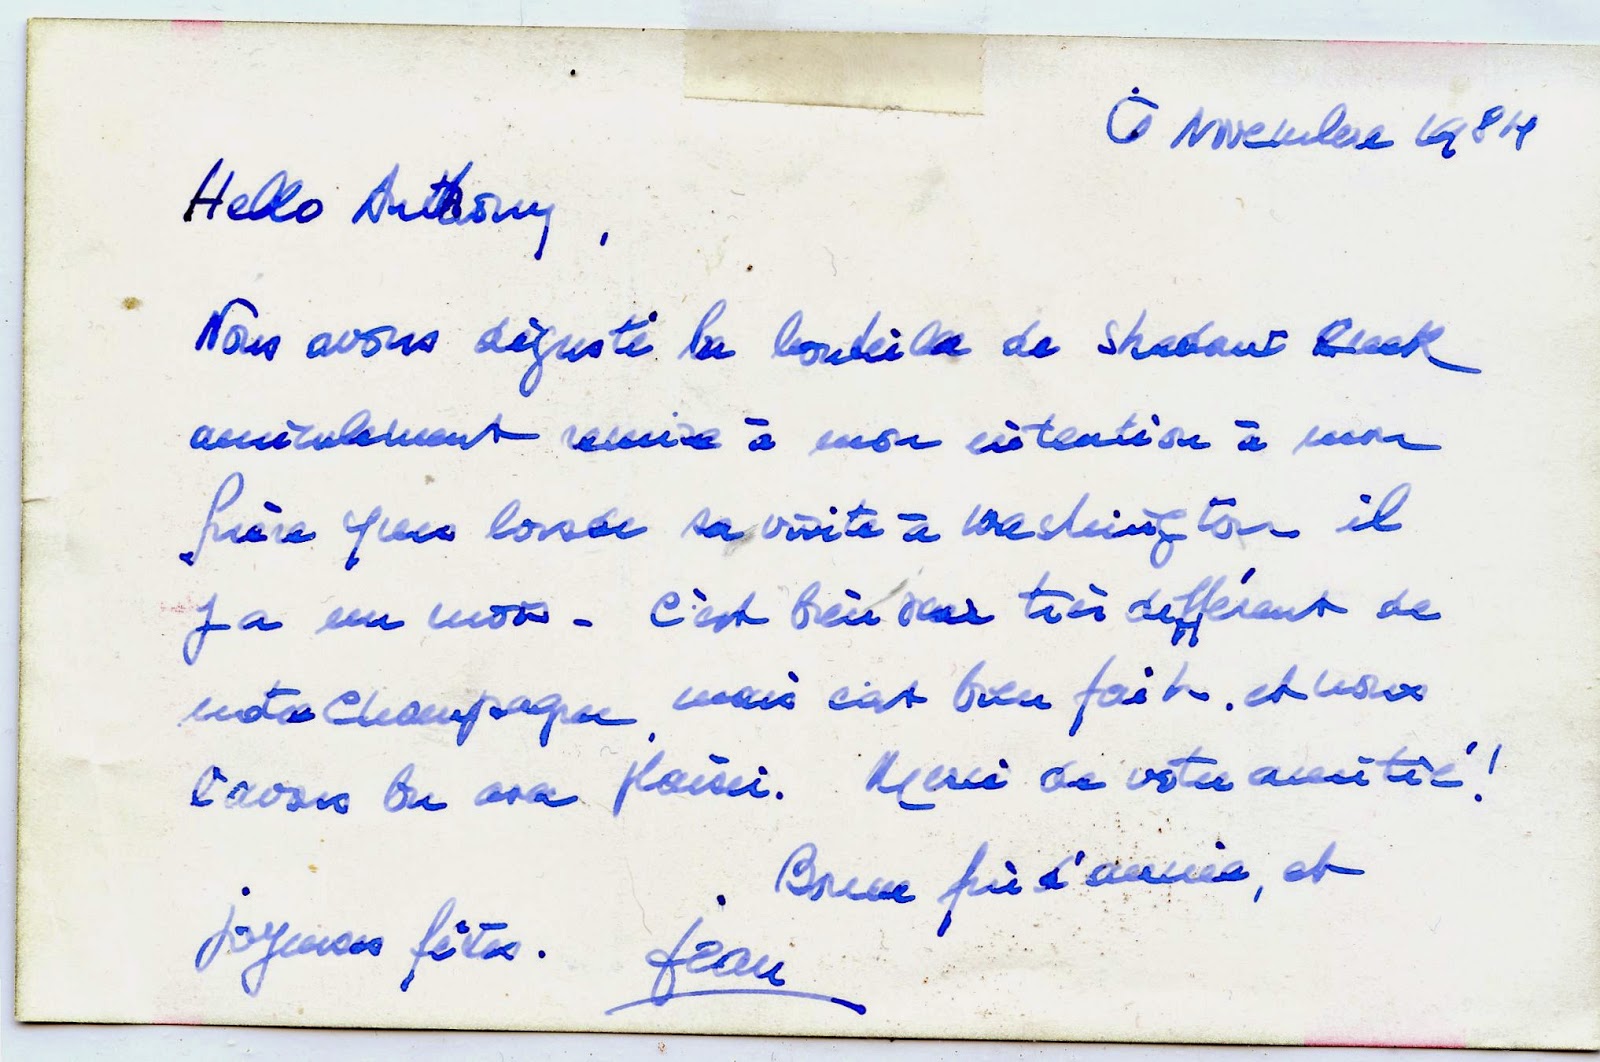 6 Novembre 1984
Hello Anthony,
Nous avons dégusté la bouteille de Shadow Creek
amicalement remise à mon intention à mon
frère lors de sa visite à Washington il
y a un mois - C'est bien sûr très différent de
notre Champagne, mais c'est bien fait. et nous
l'avons bu avec plaisir. Merci de votre amitié!
Bonne fin d'année, et
joyeuses fêtes. Jean